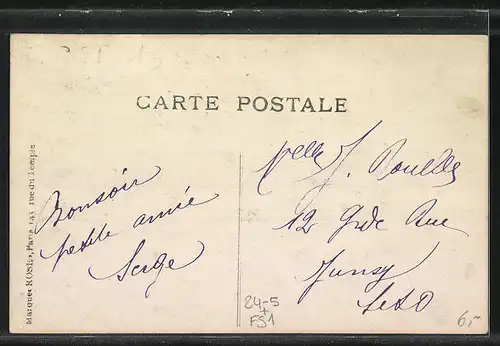 CARTE POSTALE
Bonsoir
petite amie
Serge
Melle J.
12 Gde Rue
Juvisy
S et O
Marque ROSE, Paris 145 rue du Temple
24-5
FS1
6.-